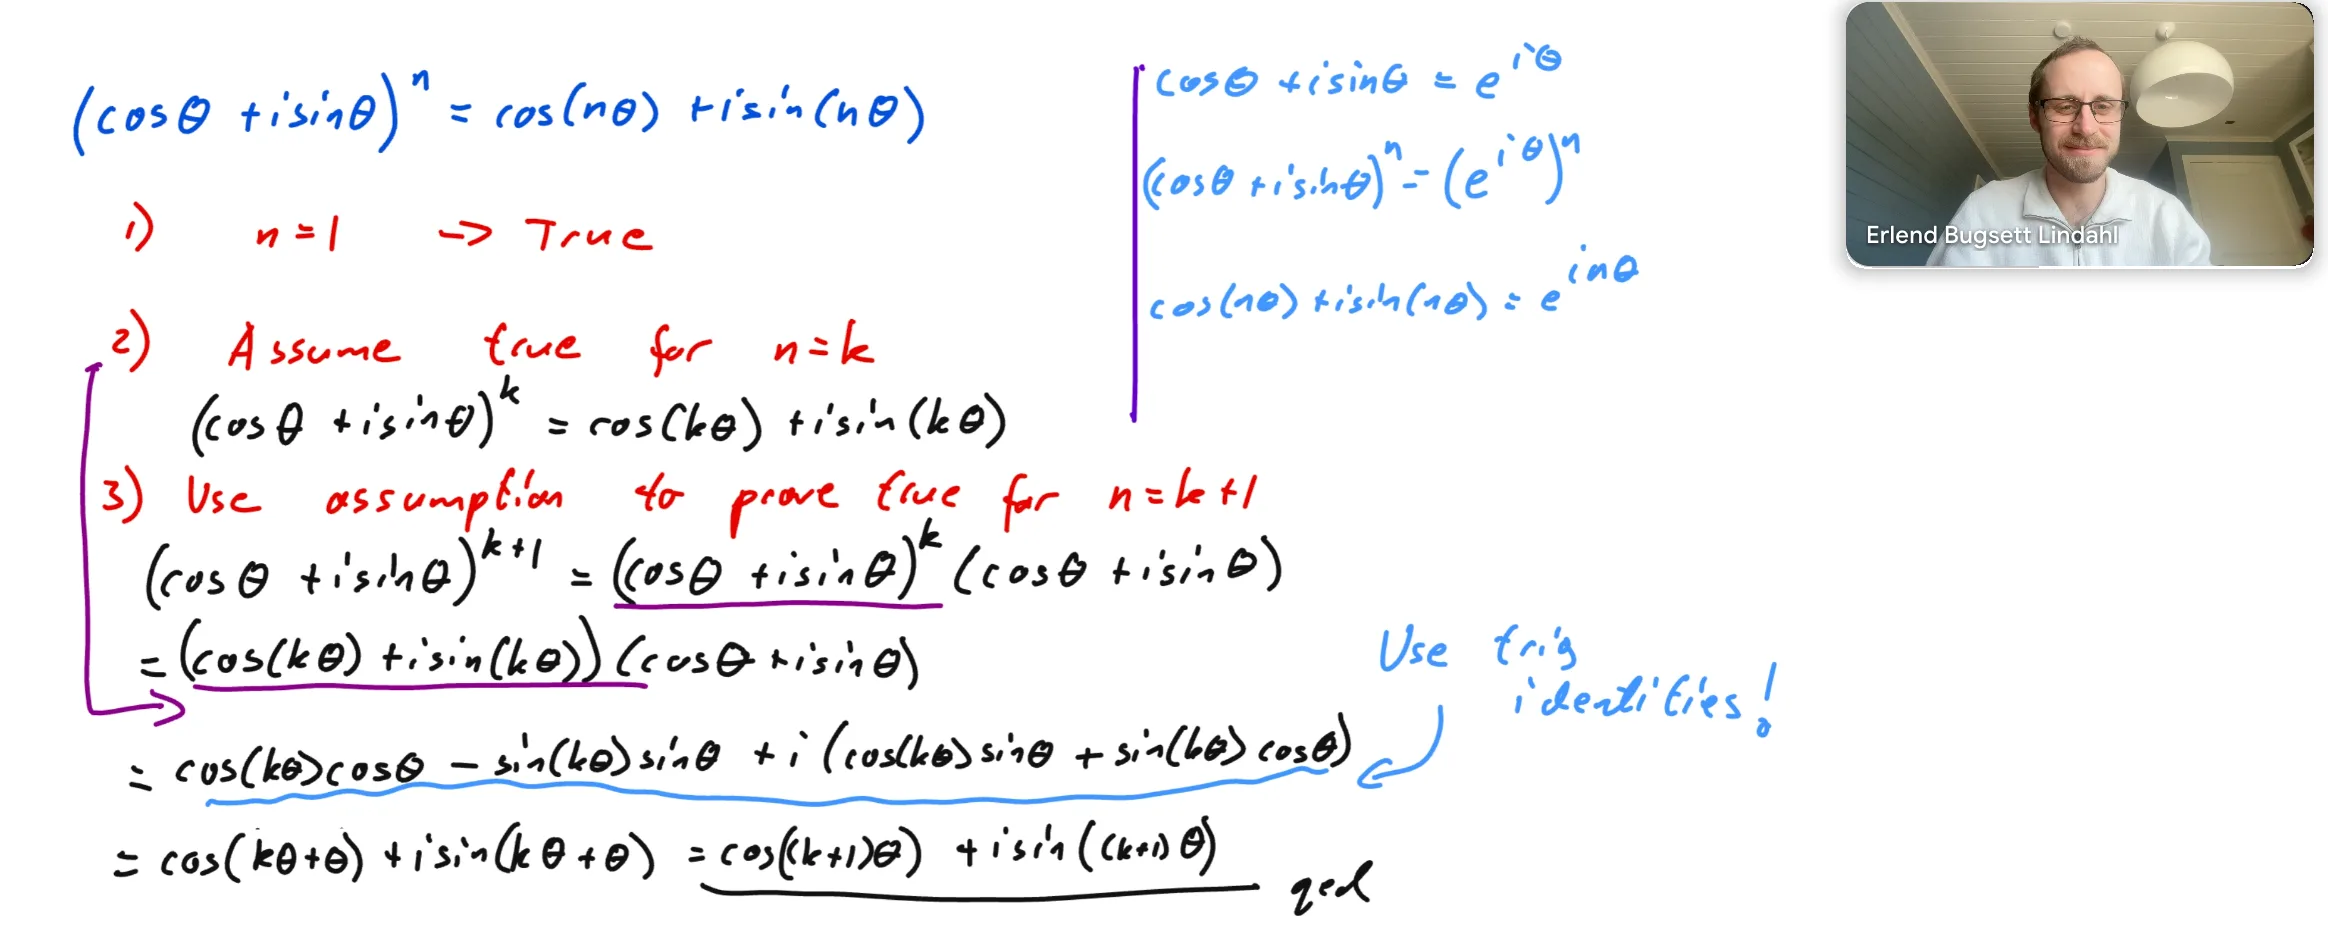 (cosθ + isinθ)ⁿ = cos(nθ) + isin(nθ)
1) n = 1 -> True
2) Assume true for n = k
(cosθ + isinθ)ᵏ = cos(kθ) + isin(kθ)
3) Use assumption to prove true for n = k + 1
(cosθ + isinθ)ᵏ⁺¹ = (cosθ + isinθ)ᵏ (cosθ + isinθ)
= (cos(kθ) + isin(kθ)) (cosθ + isinθ)
= cos(kθ)cosθ − sin(kθ)sinθ + i (cos(kθ)sinθ + sin(kθ)cosθ)
= cos(kθ+θ) + isin(kθ+θ) = cos((k+1)θ) + isin((k+1)θ)
qed
Use trig
identities!
cosθ + isinθ = e^{iθ}
(cosθ + isinθ)ⁿ = (e^{iθ})ⁿ
cos(nθ) + isin(nθ) = e^{inθ}
Erlend Bugsett Lindahl